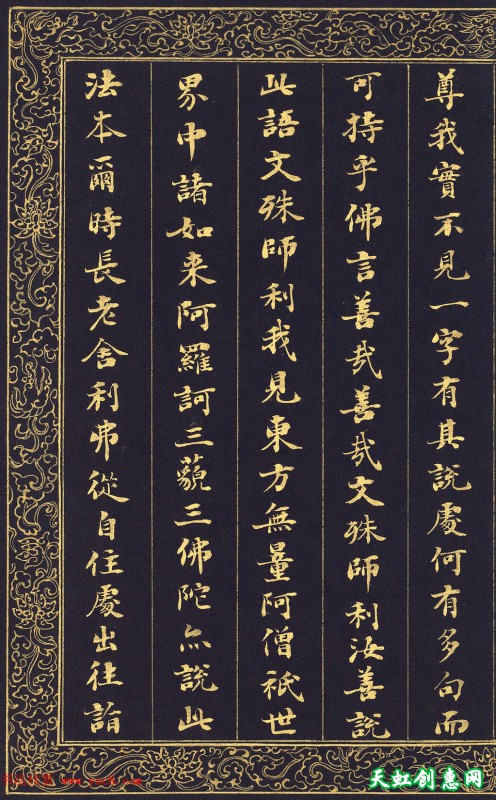 尊我實不見一字有其說處何有多句而
可持乎佛言善哉善哉文殊師利汝善說
此語文殊師利我見東方無量阿僧祇世
界中諸如来阿羅訶三藐三佛陀亦說此
法本爾時長老舍利弗從自住處出往詣
天虹创惠网